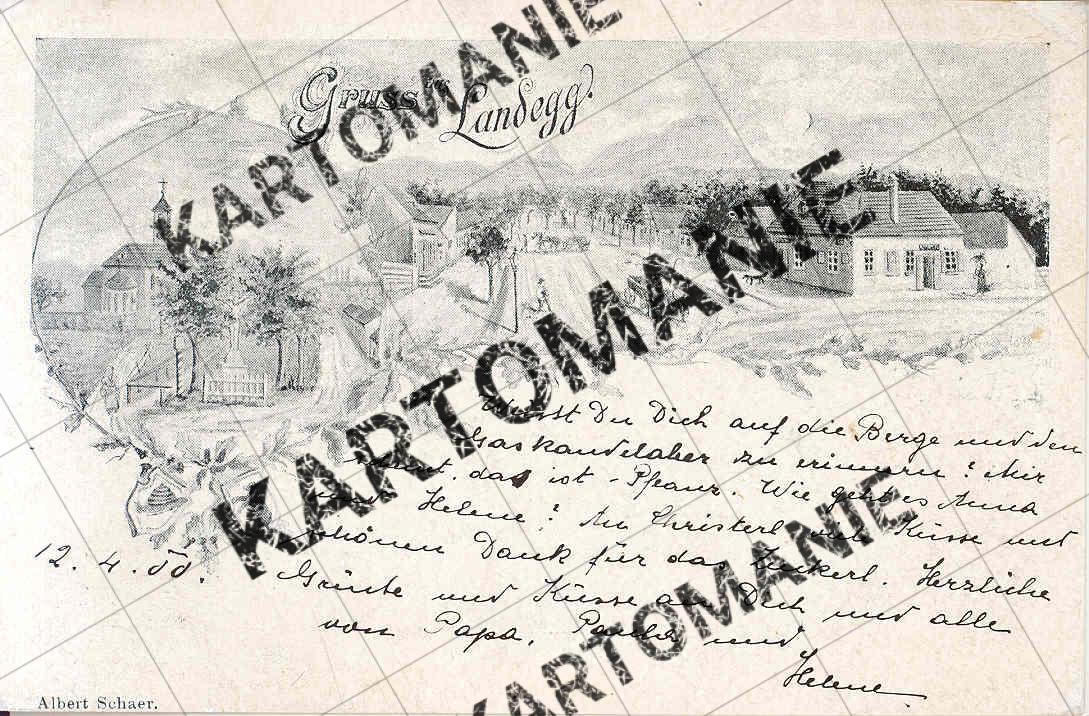 Gruss aus
Landegg.
Du Dich auf die Berge und den
Gaskandelaber zu erinnern? Mir
das ist - Pflanz. Wie geht es Anna
Helene? An Christerl viele Küsse und
schönen Dank für das Zuckerl. Herzliche
12. 4. 00.
Grüße und Küsse an Dich und alle
von Papa, Paula und
Helene
Albert Schaer.
KARTOMANIE
KARTOMANIE
KARTOMANIE